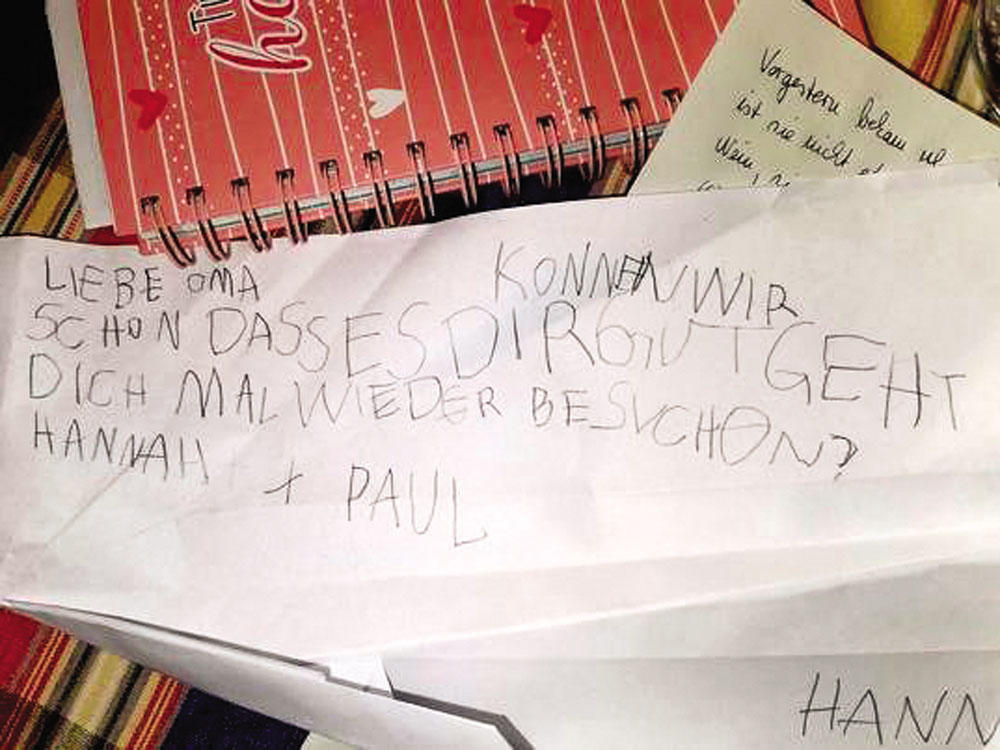 Vorgestern bekam
ist sie nicht
Wein
LIEBE OMA
KONNEN WIR
SCHON DASS ES DIR GUT GEHT
DICH MAL WIEDER BESUCHON?
HANNAH + PAUL
HANN